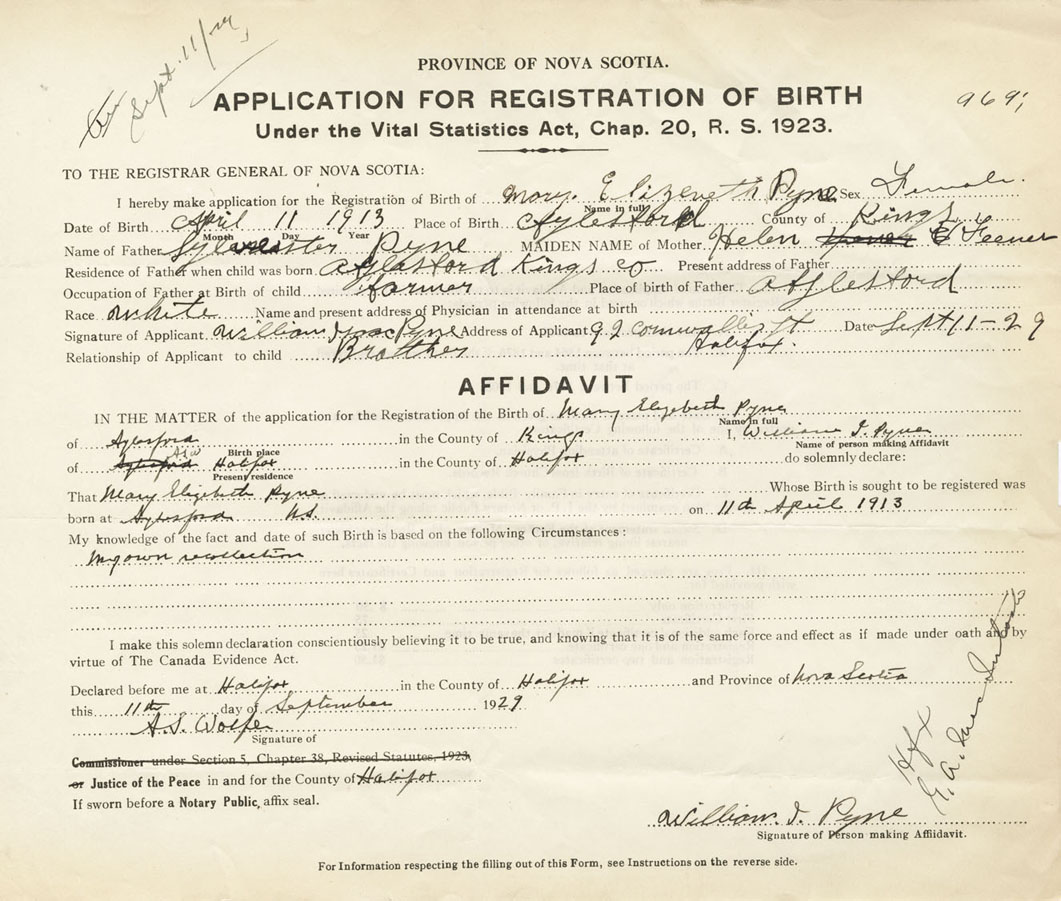 Sept. 11/29
PROVINCE OF NOVA SCOTIA.
APPLICATION FOR REGISTRATION OF BIRTH
969
Under the Vital Statistics Act, Chap. 20, R. S. 1923.
TO THE REGISTRAR GENERAL OF NOVA SCOTIA:
I hereby make application for the Registration of Birth of Mary Elizebeth Pyne Sex Female
Name in full
Date of Birth April 11 1913 Place of Birth Aylesford County of Kings
Month Day Year
Name of Father Sylvester Pyne MAIDEN NAME of Mother Helen E Feener
Residence of Father when child was born Aylesford Kings Co Present address of Father
Occupation of Father at Birth of child farmer Place of birth of Father Aylesford
Race White Name and present address of Physician in attendance at birth
Signature of Applicant William Isaac Pyne Address of Applicant 92 Cornwallis St Date Sept 11-29
Halifax.
Relationship of Applicant to child Brother
AFFIDAVIT
IN THE MATTER of the application for the Registration of the Birth of Mary Elizebeth Pyne
Name in full
of Aylesford in the County of Kings I, William I. Pyne
Birth place Name of person making Affidavit
of Aylesford Halifax in the County of Halifax do solemnly declare:
Present residence
That Mary Elizebeth Pyne Whose Birth is sought to be registered was
born at Aylesford N.S. on 11th April 1913
My knowledge of the fact and date of such Birth is based on the following Circumstances:
My own recollection
I make this solemn declaration conscientiously believing it to be true, and knowing that it is of the same force and effect as if made under oath and by
virtue of The Canada Evidence Act.
Declared before me at Halifax in the County of Halifax and Province of Nova Scotia
this 11th day of September 1929
A.S. Wolfe
Signature of
Commissioner under Section 5, Chapter 38, Revised Statutes, 1923,
or Justice of the Peace in and for the County of Halifax
If sworn before a Notary Public, affix seal.
Hfx
William I. Pyne
Signature of Person making Affidavit.
For Information respecting the filling out of this Form, see Instructions on the reverse side.